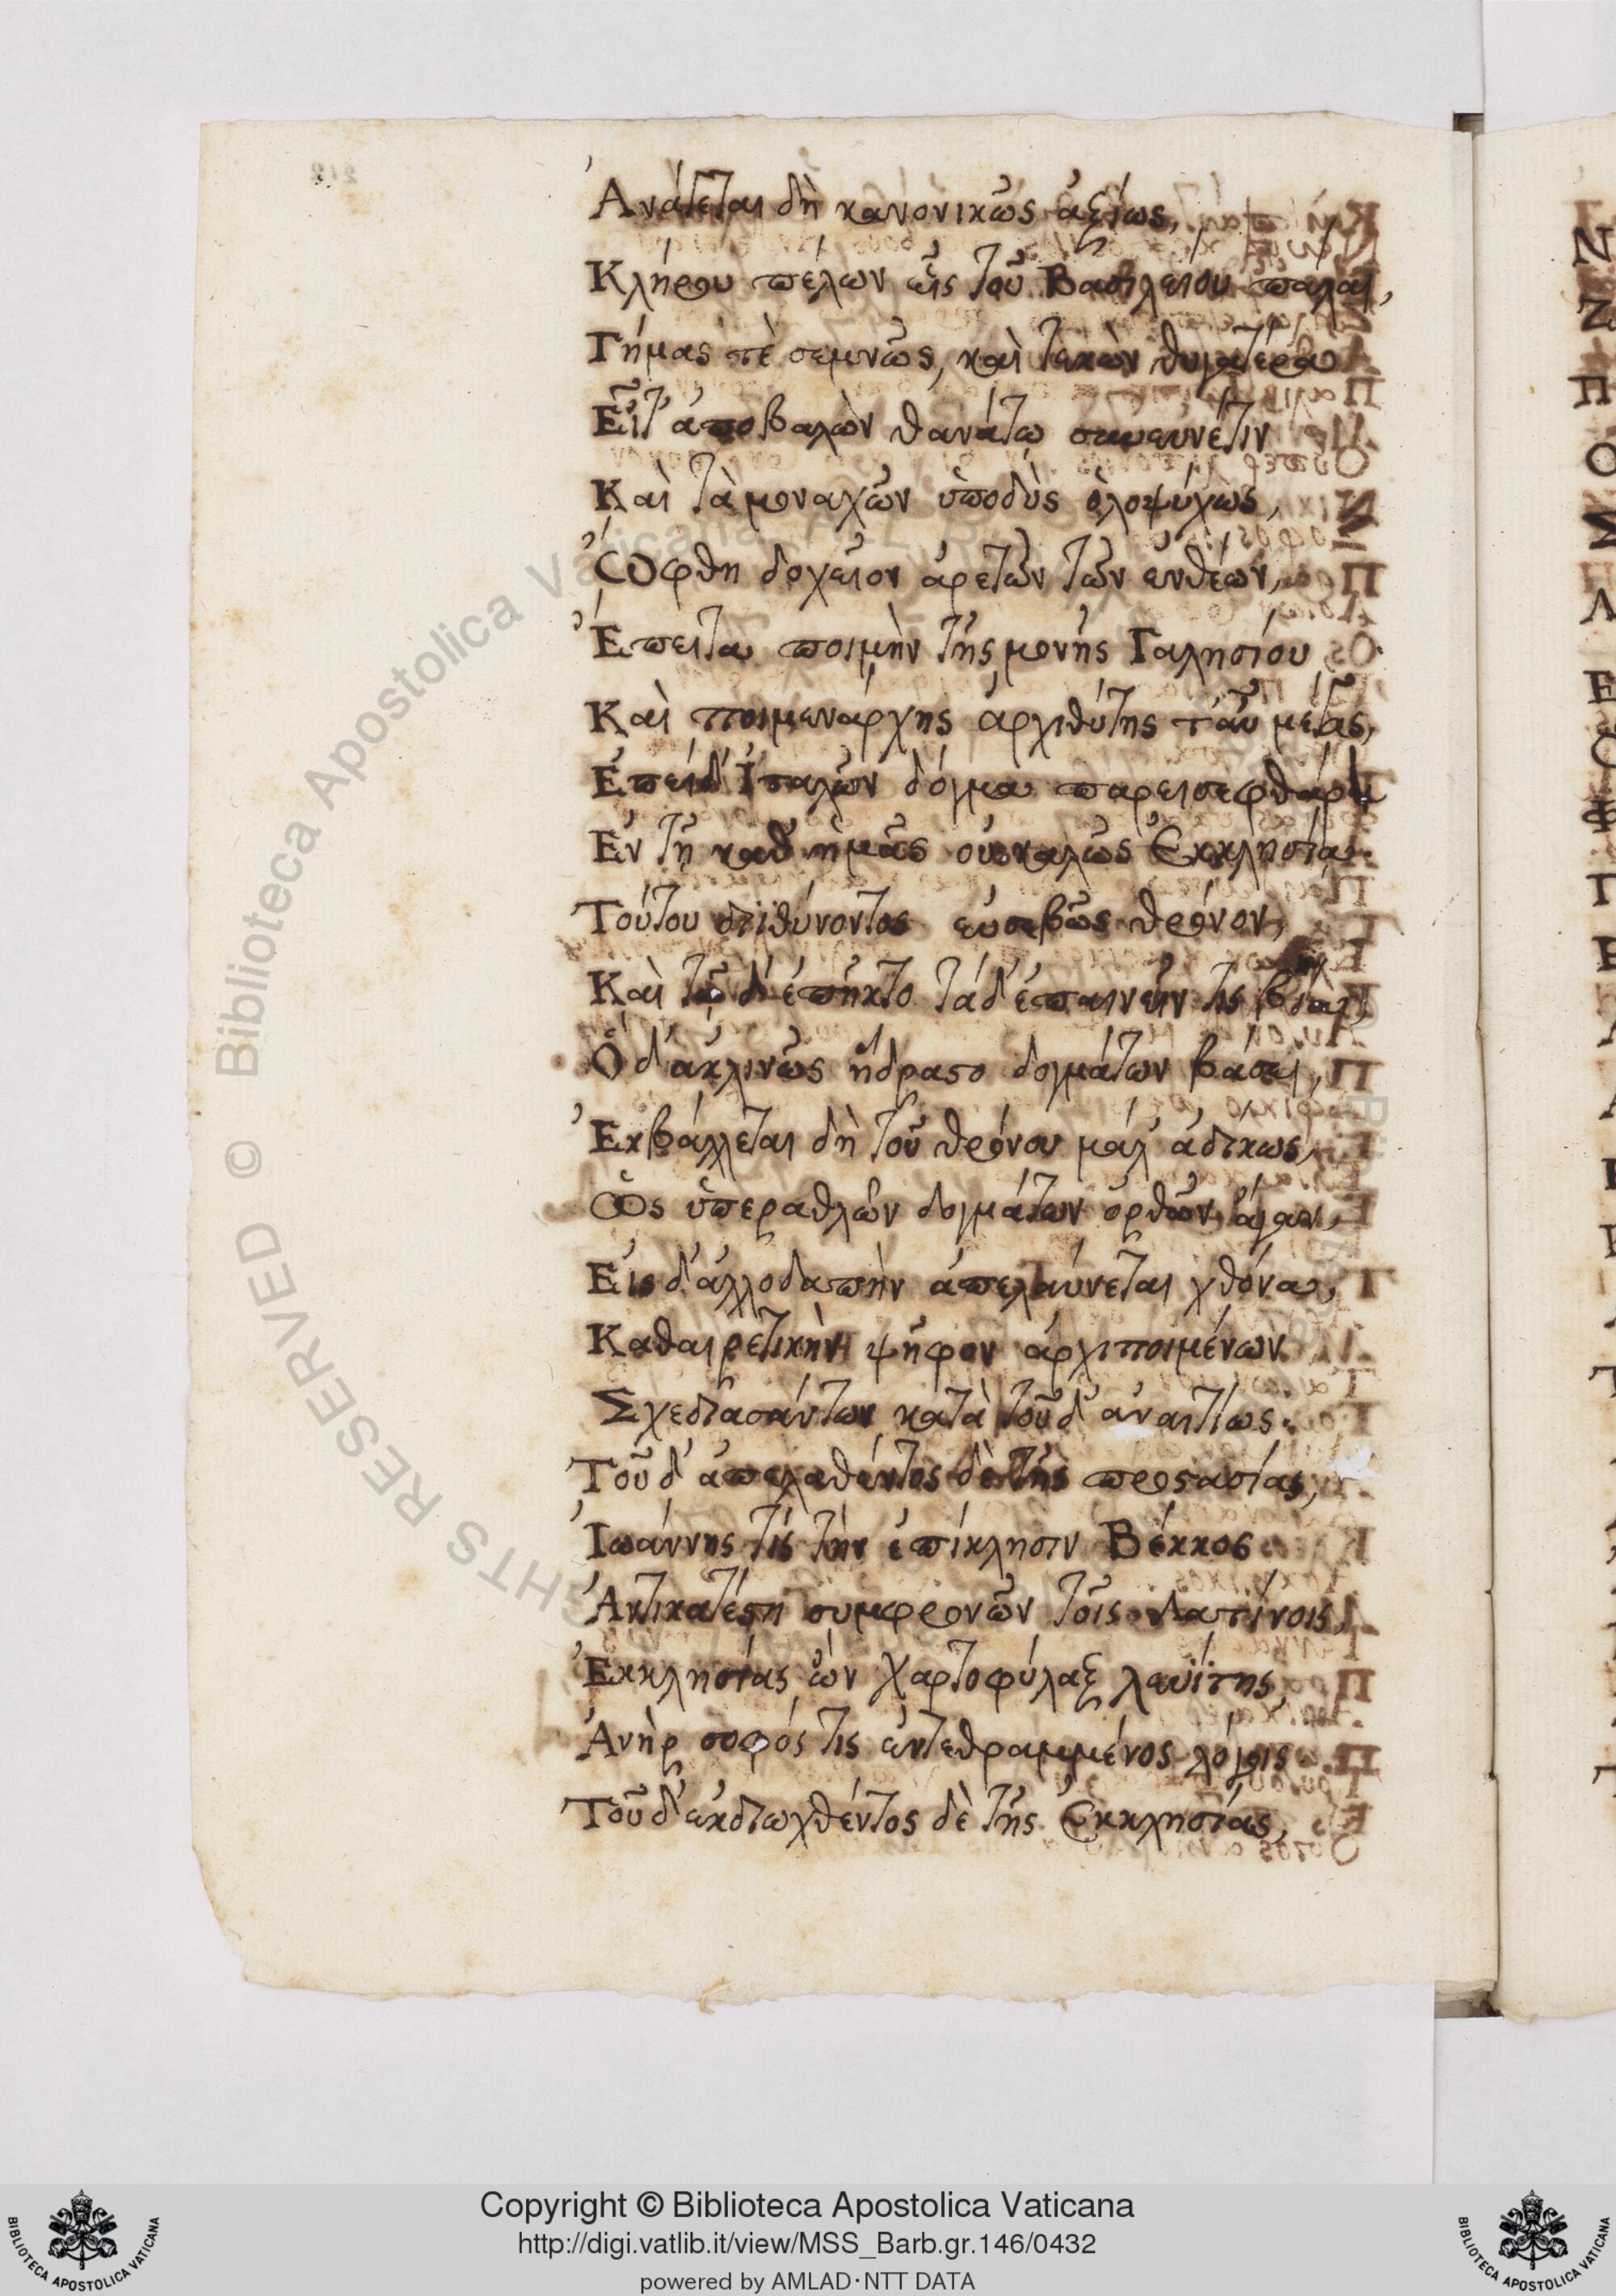 Ἀνάγεται δὴ κανονικῶς ἀξίως,
Κλήρου πέλων εἷς τοῦ Βασιλείου πάλαι,
Γήμας τὲ σεμνῶς, καὶ τεκὼν θυγατέρα
Εἶτ' ἀποβαλὼν θανάτῳ συνευνέτιν
Καὶ τὰ μοναχῶν ὑποδὺς ὁλοψύχως,
Ὤφθη δοχεῖον ἀρετῶν τῶν ἐνθέων,
Ἔπειτα ποιμὴν τῆς μονῆς Γαλησίου
Καὶ ποιμενάρχης ἀρχιθύτης τ' αὖ μέγας,
Ἐπεὶ δ' Ἰταλῶν δόγμα παρεισεφθάρη
Ἐν τῇ καθ' ἡμᾶς οὐ καλῶς Ἐκκλησίᾳ
Τούτου διϊθύνοντος εὐσεβῶς θρόνον,
Καὶ τῷ δ' ἐπῆκτο τάδ' ἐπαινεῖν τις βία,
Ὁ δ' ἀκλινῶς ἥδραστο δογμάτων βάσει,
Ἐκβάλλεται δὴ τοῦ θρόνου μάλ' ἀδίκως,
Ὡς ὑπεραθλῶν δογμάτων ὀρθῶν ἄγαν,
Εἰς δ' ἀλλοδαπὴν ἀπελαύνεται χθόνα,
Καθαιρετικὴν ψῆφον ἀρχιποιμένων
Σχεδιασάντων κατὰ τοῦδ' ἀναιτίως.
Τοῦ δ' ἀπελαθέντος δὲ τῆς προστασίας,
Ἰωάννης τίς τὴν ἐπίκλησιν Βέκκος
Ἀντικατέστη συμφρονῶν τοῖς Λατίνοις,
Ἐκκλησίας ὢν χαρτοφύλαξ λευΐτης
Ἀνὴρ σοφός τις ἐντεθραμμένος λόγοις.
Τοῦ δ' ἐκδιωχθέντος δὲ τῆς Ἐκκλησίας,
© Biblioteca Apostolica Vaticana ALL RIGHTS RESERVED
Copyright © Biblioteca Apostolica Vaticana
http://digi.vatlib.it/view/MSS_Barb.gr.146/0432
powered by AMLAD·NTT DATA
BIBLIOTECA APOSTOLICA VATICANA
BIBLIOTECA APOSTOLICA VATICANA